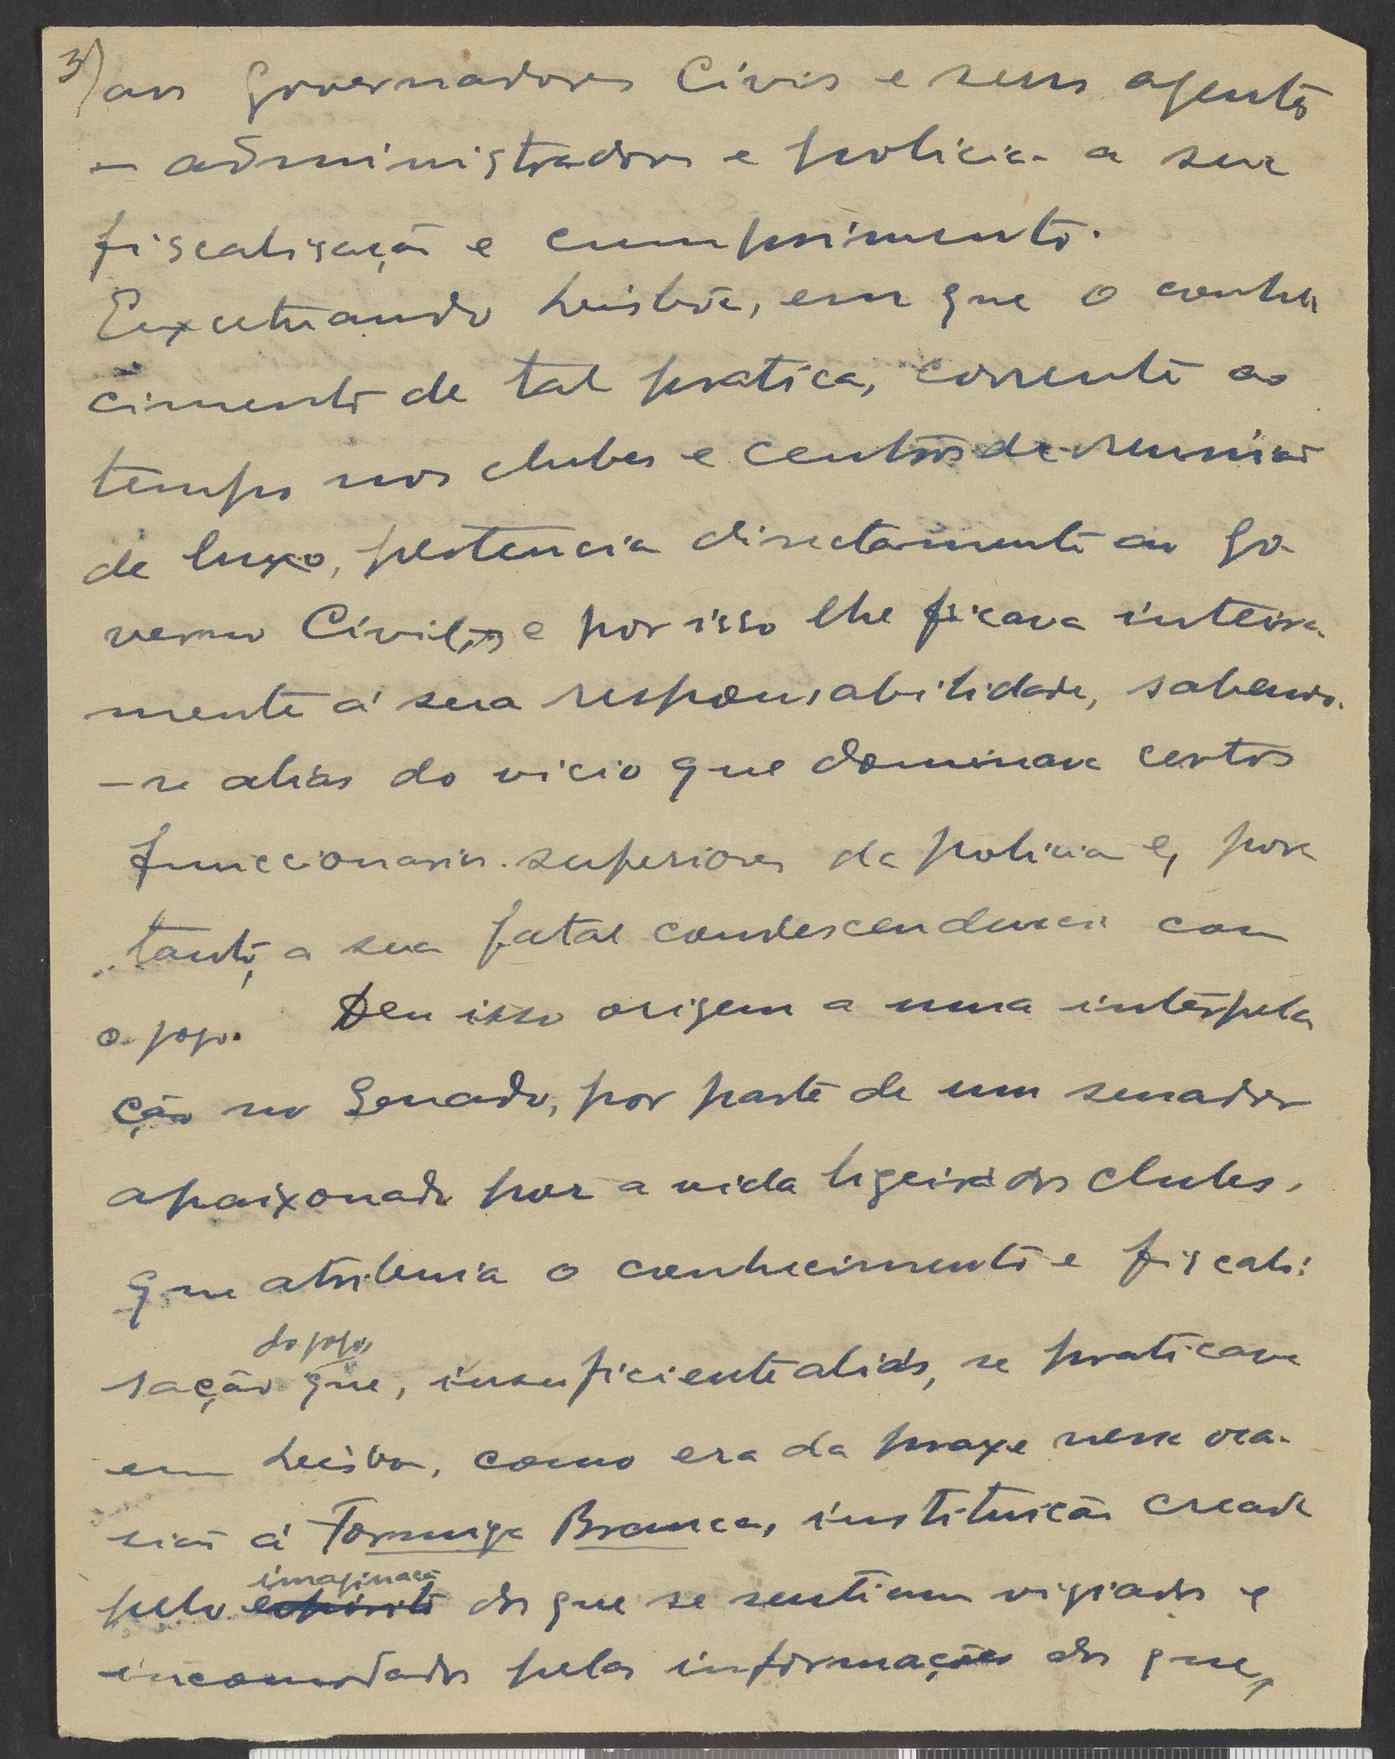 3) aos Governadores Civis e seus agentes
- administradores e policia a sua
fiscalisação e cumprimento.
Exceptuando Lisboa, em que o conhe
cimento de tal pratica, corrente ao
tempo nos clubes e centros de reunião
de luxo, pertencia directamente ao Go-
verno Civil, e por isso lhe ficava inteira-
mente á sua responsabilidade, sabendo-
-se aliás do vicio que dominava certos
funccionarios superiores da policia e, por
tanto, a sua fatal condescendencia com
o jogo. Deu isso origem a uma interpela
ção no Senado, por parte de um senador
apaixonado por a vida ligeira dos clubes,
que atribuia o conhecimento e fiscali
do jogo,
sação que, insuficiente aliás, se praticava
em Lisboa, como era da praxe nessa oca-
sião á Formiga Branca, instituição creada
imaginação
pelo espirito dos que se sentiam vigiados e
incomodados pelas informações dos que,